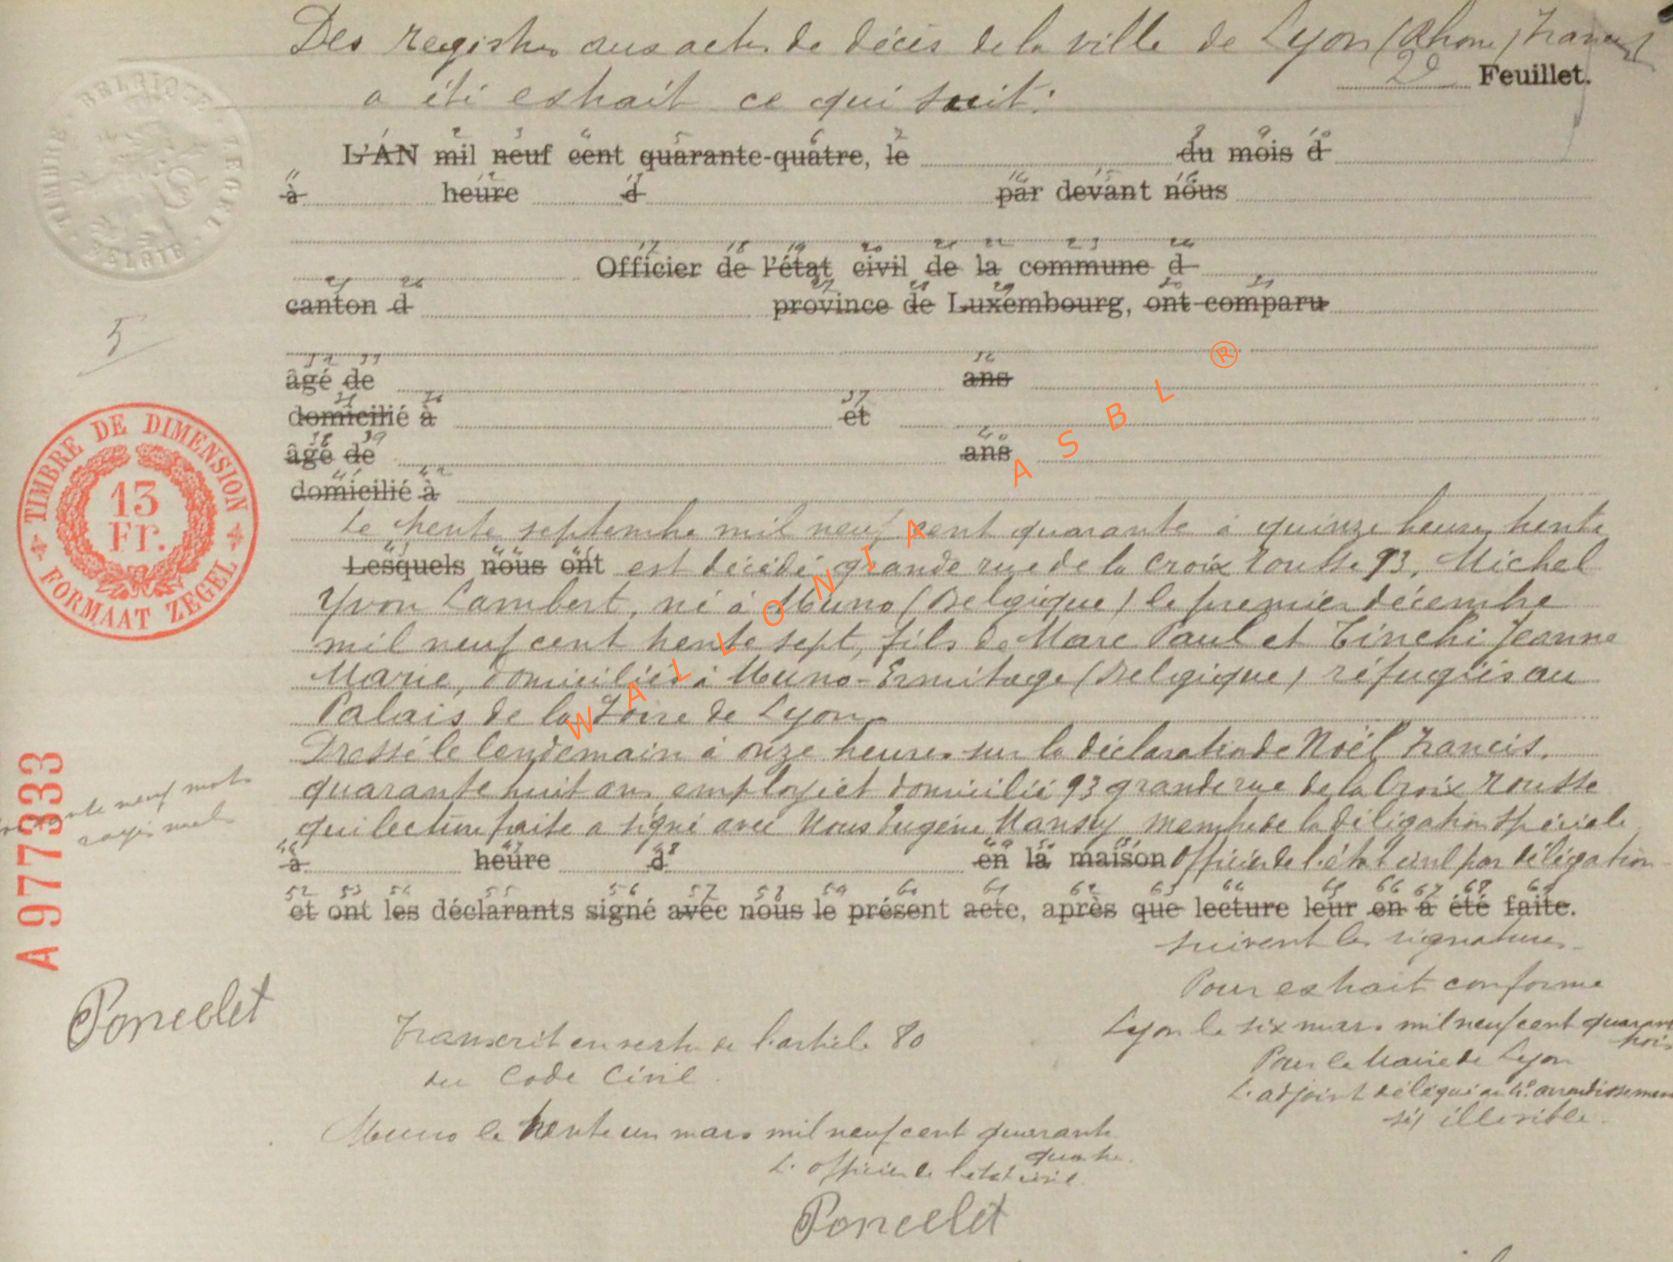 Des registres aux actes de décès de la ville de Lyon (Rhone) France
2e Feuillet.
a été extrait ce qui suit :
L'AN mil neuf cent quarante-quatre, le du mois d
à heure d par devant nous
Officier de l'état civil de la commune d
canton d province de Luxembourg, ont comparu
5
âgé de ans
domicilié à et
âgé de ans
domicilié à
Le trente septembre mil neuf cent quarante à quinze heures trente
Lesquels nous ont est décédé grande rue de la Croix rousse 93, Michel
Yvon Lambert, né à Muno (Belgique) le premier décembre
mil neuf cent trente sept, fils de Marc Paul et Jeanne
Marie, domiciliés à Muno-Ermitage (Belgique) réfugiés au
Palais de la Foire de Lyon.
Dressé le lendemain à onze heures sur la déclaration de Noël Francis,
quarante huit ans, employé et domicilié 93 grande rue de la Croix rousse
qui lecture faite a signé avec Nous Eugène membre de la délégation spéciale
à heure d en la maison Officier de l'état civil par délégation
et ont les déclarants signé avec nous le présent acte, après que lecture leur en a été faite.
suivent les signatures.
Pour extrait conforme
Lyon le six mars mil neuf cent quarante
trois
Pour le Maire de Lyon
L'adjoint délégué au 4e arrondissement
sig illisible.
Transcrit en vertu de l'article 80
du Code Civil.
Muno le trente un mars mil neuf cent quarante
quatre.
L'officier de l'état civil.
Poncelet
neuf mots
rayés nuls
Poncelet
BELGIQUE ZEGEL BELGIE TIMBRE
TIMBRE DE DIMENSION
13
Fr.
FORMAAT ZEGEL
A977333
WALLONIA ASBL ®